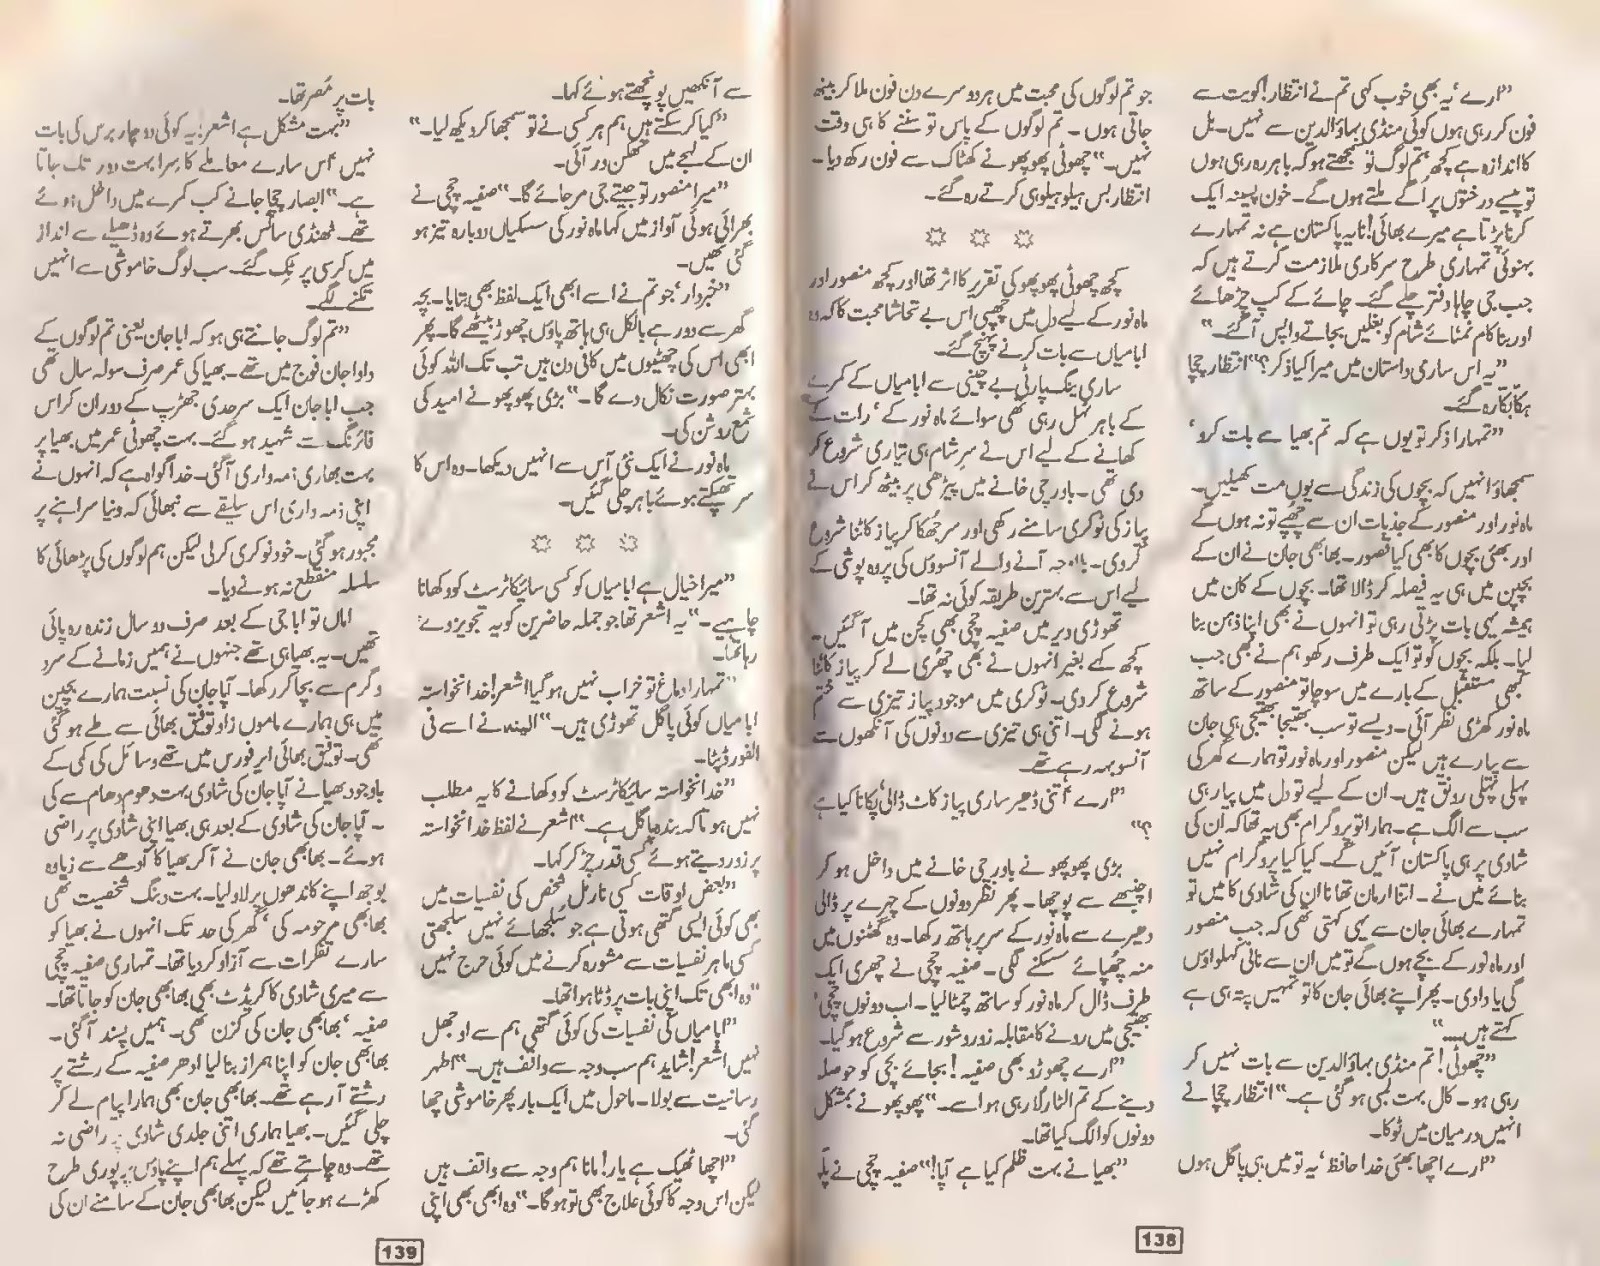 ”ارے‘ یہ بھی خوب کہی تم نے انتظار! کویت سے
فون کر رہی ہوں کوئی منڈی بہاؤالدین سے نہیں۔ بل
کا اندازہ ہے کچھ‘ تم لوگ تو سمجھتے ہو کہ باہر رہ رہی ہوں
تو پیسے درختوں پر اُگے ملتے ہوں گے۔ خون پسینہ ایک
کرنا پڑتا ہے میرے بھائی! نا یہ پاکستان ہے نہ تمہارے
بہنوئی تمہاری طرح سرکاری ملازمت کرتے ہیں کہ
جب جی چاہا دفتر چلے گئے۔ چائے کے کپ چڑھائے
اور بنا کام نمٹائے شام کو بغلیں بجاتے واپس آگئے۔“
”یہ اس ساری داستان میں میرا کیا ذکر؟“ انتظار چچا
ہکا بکا رہ گئے۔
”تمہارا ذکر تو یوں ہے کہ تم بھیا سے بات کرو‘
سمجھاؤ انہیں کہ بچوں کی زندگی سے یوں مت کھیلیں۔
ماہ نور اور منصور کے جذبات ان سے چھپے تو نہ ہوں گے
اور بھئی بچوں کا بھی کیا قصور۔ بھابھی جان نے ان کے
بچپن میں ہی یہ فیصلہ کر ڈالا تھا۔ بچوں کے کان میں
ہمیشہ یہی بات پڑتی رہی تو انہوں نے بھی اپنا ذہن بنا
لیا۔ بلکہ بچوں کو تو ایک طرف رکھو ہم نے بھی جب
کبھی مستقبل کے بارے میں سوچا تو منصور کے ساتھ
ماہ نور کھڑی نظر آئی۔ ویسے تو سب بھتیجا بھتیجی ہی جان
سے پیارے ہیں لیکن منصور اور ماہ نور تو ہمارے گھر کی
پہلی پہلی رونق ہیں۔ ان کے لیے تو دل میں پیار ہی
سب سے الگ ہے۔ ہمارا تو پروگرام بھی یہ تھا کہ ان کی
شادی پر ہی پاکستان آئیں گے۔ کیا کیا پروگرام نہیں
بنائے میں نے۔ اتنا ارمان تھا نا ان کی شادی کا میں تو
تمہارے بھائی جان سے یہی کہتی تھی کہ جب منصور
اور ماہ نور کے بچے ہوں گے تو میں ان سے نانی کہلواؤں
گی یا دادی۔ پھر اپنے بھائی جان کا تو تمہیں پتہ ہی ہے
کہتے ہیں....“
”چھوٹی! تم منڈی بہاؤالدین سے بات نہیں کر
رہی ہو۔ کال بہت لمبی ہو گئی ہے۔“ انتظار چچا نے
انہیں درمیان میں ٹوکا۔
”ارے اچھا بھئی خدا حافظ‘ یہ تو میں ہی پاگل ہوں
جو تم لوگوں کی محبت میں ہر دوسرے دن فون ملا کر بیٹھ
جاتی ہوں۔ تم لوگوں کے پاس تو سننے کا ہی وقت
نہیں۔“ چھوٹی پھوپھو نے کھٹاک سے فون رکھ دیا۔
انتظار بس ہیلو ہیلو ہی کرتے رہ گئے۔
کچھ چھوٹی پھوپھو کی تقریر کا اثر تھا اور کچھ منصور اور
ماہ نور کے لیے دل میں چھپی اس بے تحاشا محبت کا کہ وہ
ابا میاں سے بات کرنے پہنچ گئے۔
ساری ینگ پارٹی بے چینی سے ابا میاں کے کمرے
کے باہر ٹہل رہی تھی سوائے ماہ نور کے‘ رات کے
کھانے کے لیے اس نے سرِشام ہی تیاری شروع کر
دی تھی۔ باورچی خانے میں پیڑھی پر بیٹھ کر اس نے
پیاز کی ٹوکری سامنے رکھی اور سر جھکا کر پیاز کاٹنا شروع
کر دی۔ جہ آنے والے آنسوؤں کی پردہ پوشی کے
لیے اس سے بہترین طریقہ کوئی نہ تھا۔
تھوڑی دیر میں صفیہ چچی بھی کچن میں آ گئیں۔
کچھ کہے بغیر انہوں نے بھی چھری لے کر پیاز کاٹنا
شروع کر دی۔ ٹوکری میں موجود پیاز تیزی سے ختم
ہونے لگی۔ اتنی ہی تیزی سے دونوں کی آنکھوں سے
آنسو بہہ رہے تھے۔
”ارے‘ اتنی ڈھیر ساری پیاز کاٹ ڈالی‘ پکانا کیا ہے
؟“
بڑی پھوپھو نے باورچی خانے میں داخل ہو کر
اچنبھے سے پوچھا۔ پھر نظر دونوں کے چہرے پر ڈالی
دھیرے سے ماہ نور کے سر پر ہاتھ رکھا۔ وہ گھٹنوں میں
منہ چھپائے سسکنے لگی۔ صفیہ چچی نے چھری ایک
طرف ڈال کر ماہ نور کو ساتھ چمٹا لیا۔ اب دونوں چچی‘
بھتیجی میں رونے کا مقابلہ زور و شور سے شروع ہو گیا۔
”ارے چھوڑو بھی صفیہ! بجائے بچی کو حوصلہ
دینے کے تم الٹا رلا رہی ہو اسے۔“ پھوپھو نے بمشکل
دونوں کو الگ کیا تھا۔
”بھیا نے بہت ظلم کیا ہے آپا!“ صفیہ چچی نے پلو
138
سے آنکھیں پونچھتے ہوئے کہا۔
”کیا کر سکتے ہیں ہم ہر کسی نے تو سمجھا کر دیکھ لیا۔“
ان کے لہجے میں تھکن در آئی۔
”میرا منصور تو جیتے جی مر جائے گا۔“ صفیہ چچی نے
بھرائی ہوئی آواز میں کہا ماہ نور کی سسکیاں دوبارہ تیز ہو
گئی تھیں۔
”خبردار‘ جو تم نے اسے ابھی ایک لفظ بھی بتایا۔ بچہ
گھر سے دور ہے بالکل ہی ہاتھ پاؤں چھوڑ بیٹھے گا۔ پھر
ابھی اس کی چھٹیوں میں کافی دن ہیں تب تک اللہ کوئی
بہتر صورت نکال دے گا۔“ بڑی پھوپھو نے امید کی
شمع روشن کی۔
ماہ نور نے ایک نئی آس سے انہیں دیکھا۔ وہ اس کا
سر تھپکتے ہوئے باہر چلی گئیں۔
”میرا خیال ہے ابا میاں کو کسی سائیکاٹرسٹ کو دکھانا
چاہیے۔“ یہ اشعر تھا جو جملہ حاضرین کو یہ تجویز دے
رہا تھا۔
”تمہارا دماغ تو خراب نہیں ہو گیا اشعر! خدانخواستہ
ابا میاں کوئی پاگل تھوڑی ہیں۔“ نے اسے فی
الفور ڈپٹا۔
”خدانخواستہ سائیکاٹرسٹ کو دکھانے کا یہ مطلب
نہیں ہوتا کہ بندہ پاگل ہے۔“ اشعر نے لفظ خدانخواستہ
پر زور دیتے ہوئے کسی قدر چڑ کر کہا۔
”بعض اوقات کسی نارمل شخص کی نفسیات میں
بھی کوئی ایسی گتھی ہوتی ہے جو سلجھائے نہیں سلجھتی
کسی ماہر نفسیات سے مشورہ کرنے میں کوئی حرج نہیں
“ وہ ابھی تک اپنی بات پر ڈٹا ہوا تھا۔
”ابا میاں کی نفسیات کی کوئی گتھی ہم سے اوجھل
نہیں اشعر! شاید ہم سب وجہ سے واقف ہیں۔“ اطہر
رسانیت سے بولا۔ ماحول میں ایک بار پھر خاموشی چھا
گئی۔
”اچھا ٹھیک ہے یار! مانا ہم وجہ سے واقف ہیں
لیکن اس وجہ کا کوئی علاج بھی تو ہو گا۔“ وہ ابھی بھی اپنی
بات پر مُصر تھا۔
”بہت مشکل ہے اشعر! یہ کوئی دو چار برس کی بات
نہیں‘ اس سارے معاملے کا سرا بہت دور تک جاتا
ہے۔“ ابصار چچا جانے کب کمرے میں داخل ہوئے
تھے۔ ٹھنڈی سانس بھرتے ہوئے وہ ڈھیلے سے انداز
میں کرسی پر ٹک گئے۔ سب لوگ خاموشی سے انہیں
تکنے لگے۔
”تم لوگ جانتے ہی ہو کہ ابا جان یعنی تم لوگوں کے
دادا جان فوج میں تھے۔ بھیا کی عمر صرف سولہ سال تھی
جب ابا جان ایک سرحدی جھڑپ کے دوران کراس
فائرنگ سے شہید ہو گئے۔ بہت چھوٹی عمر میں بھیا پر
بہت بھاری ذمہ داری آ گئی۔ خدا گواہ ہے کہ انہوں نے
اپنی ذمہ داری اس سلیقے سے نبھائی کہ دنیا سراہنے پر
مجبور ہو گئی۔ خود نوکری کر لی لیکن ہم لوگوں کی پڑھائی کا
سلسلہ منقطع نہ ہونے دیا۔
اماں تو ابا جی کے بعد صرف دو سال زندہ رہ پائی
تھیں۔ یہ بھیا ہی تھے جنہوں نے ہمیں زمانے کے سرد
و گرم سے بچا کر رکھا۔ آپا جان کی نسبت ہمارے بچپن
میں ہی ہمارے ماموں زاد توفیق بھائی سے طے ہو گئی
تھی۔ توفیق بھائی ایر فورس میں تھے وسائل کی کمی کے
باوجود بھیا نے آپا جان کی شادی بہت دھوم دھام سے کی
۔ آپا جان کی شادی کے بعد ہی بھیا اپنی شادی پر راضی
ہوئے۔ بھابھی جان نے آ کر بھیا کا آدھے سے زیادہ
بوجھ اپنے کاندھوں پر لاد لیا۔ بہت دبنگ شخصیت تھی
بھابھی مرحومہ کی‘ گھر کی حد تک انہوں نے بھیا کو
سارے تفکرات سے آزاد کر دیا تھا۔ تمہاری صفیہ چچی
سے میری شادی کا کریڈٹ بھی بھابھی جان کو جاتا تھا۔
صفیہ‘ بھابھی جان کی کزن تھی۔ ہمیں پسند آ گئی۔
بھابھی جان کو اپنا ہمراز بنا لیا ادھر صفیہ کے رشتے پر
رشتے آ رہے تھے۔ بھابھی جان بھی ہمارا پیام لے کر
چلی گئیں۔ بھیا ہماری اتنی جلدی شادی پر راضی نہ
تھے۔ وہ چاہتے تھے کہ پہلے ہم اپنے پاؤں پر پوری طرح
کھڑے ہو جائیں لیکن بھابھی جان کے سامنے ان کی
139